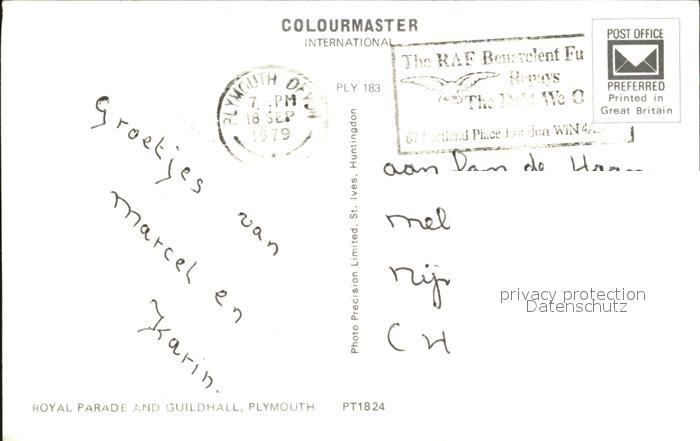 COLOURMASTER
INTERNATIONAL
The RAF Benevolent Fu
Repays
The Debt We O
67 Portland Place London W1N 4A
POST OFFICE
PREFERRED
Printed in
Great Britain
PLYMOUTH DEVON
7 PM
18 SEP
1979
PLY 183
Groetjes
van
Marcel en
Karin.
Photo Precision Limited, St. Ives, Huntingdon
aan
mel
Nijv
CH
privacy protection
Datenschutz
ROYAL PARADE AND GUILDHALL, PLYMOUTH PT1824